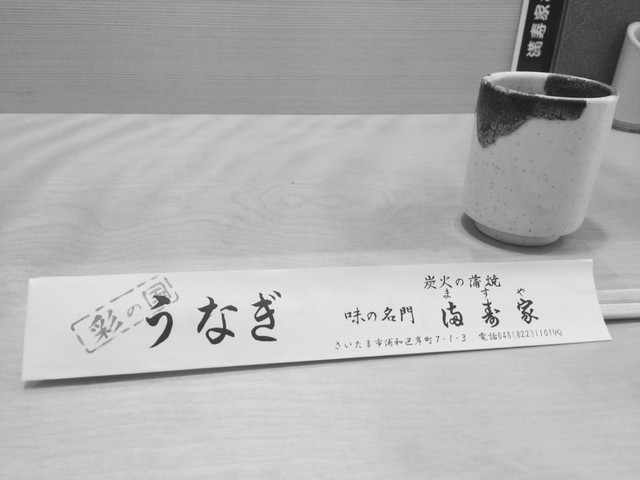 満寿家
彩の国
うなぎ
炭火の蒲焼
味の名門
ますや
満寿家
さいたま市浦和区岸町7-1-3 電話048(822)1101㈹